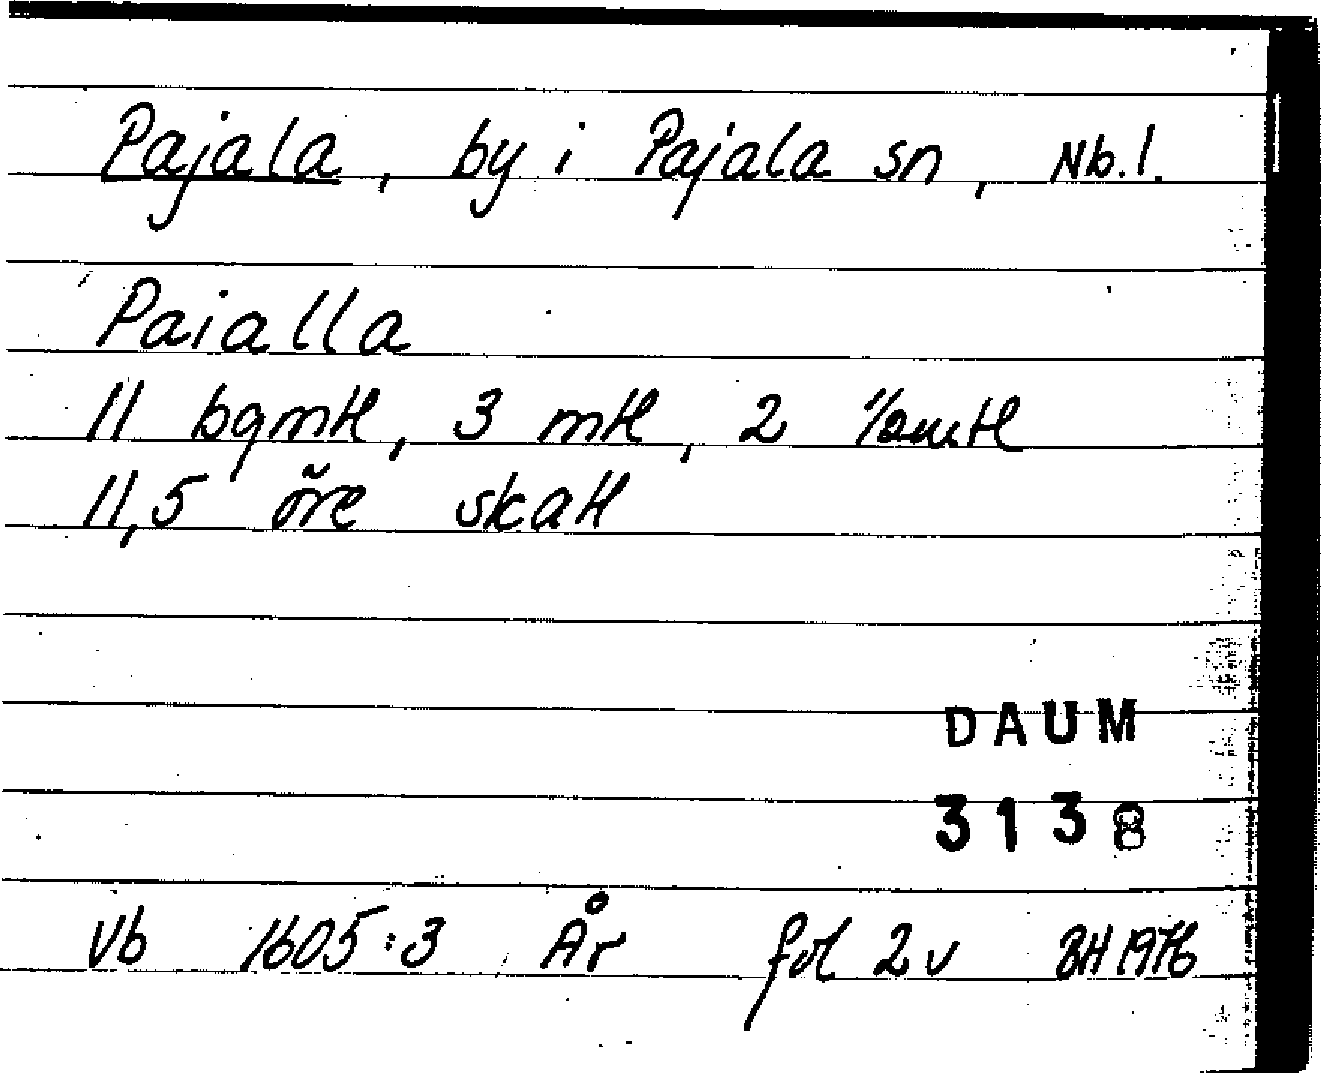 Pajala, by i Pajala sn, Nb.l.
Paialla
11 bgmtl, 3 mtl, 2 ½mtl
11,5 öre skatt
DAUM
3138
Vb 1605:3 År fol 2v BH 1976